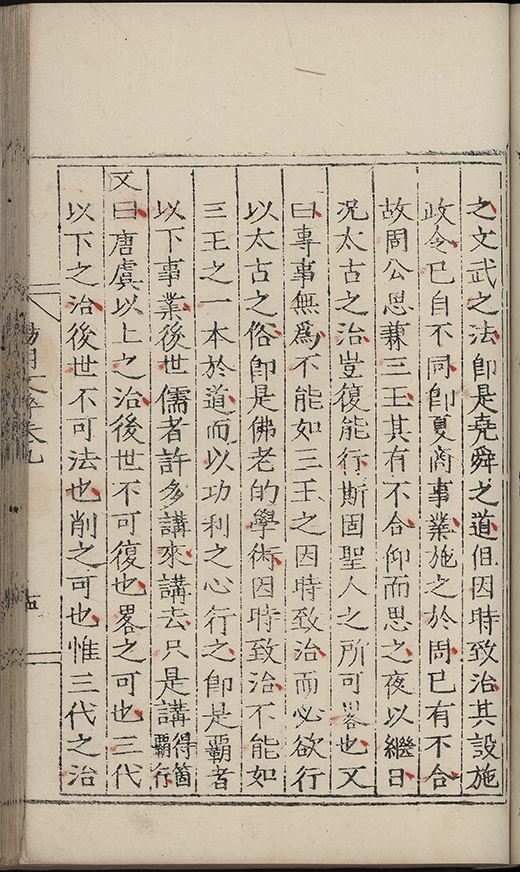 之文武之法卽是堯舜之道但因時致治其設施
政令已自不同卽夏商事業施之於周已有不合
故周公思兼三王其有不合仰而思之夜以繼日
況太古之治豈復能行斯固聖人之所可畧也又
曰專事無爲不能如三王之因時致治而必欲行
以太古之俗卽是佛老的學術因時致治不能如
三王之一本於道而以功利之心行之卽是霸者
以下事業後世儒者許多講來講去只是講得箇霸術
又曰唐虞以上之治後世不可復也畧之可也三代
以下之治後世不可法也削之可也惟三代之治
陽明文粹卷九